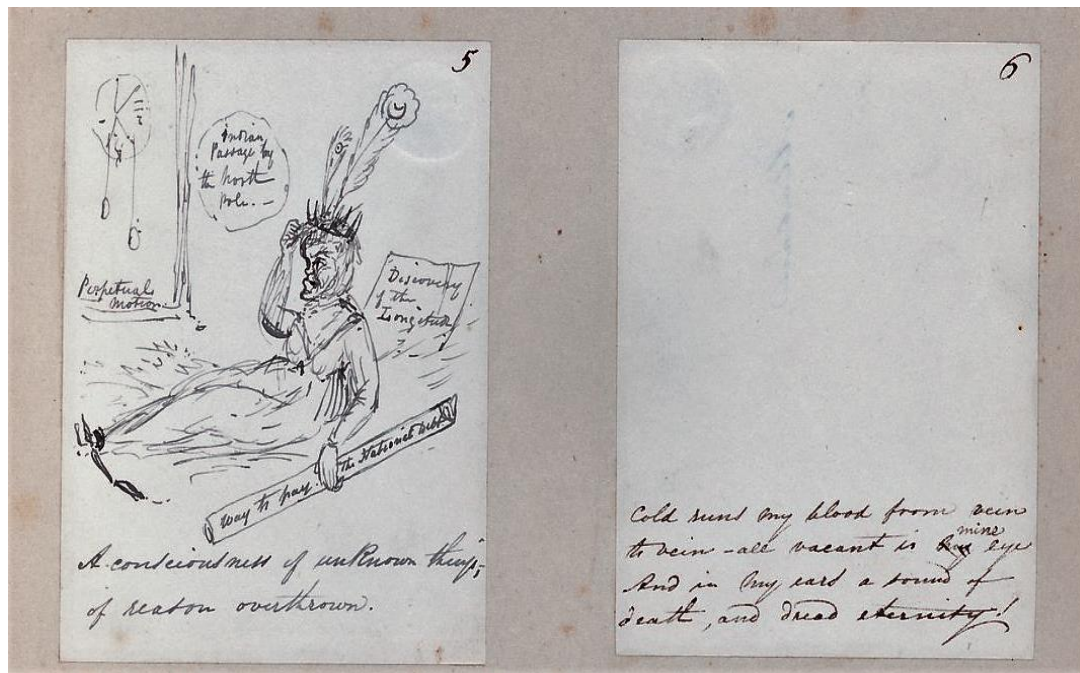 5
Indian
Passage by
the North
Pole. —
Perpetual
motion.
Discovery
of the
Longitude
Way to pay the National Debt
A consciousness of unknown things,
of reason overthrown.
6
Cold runs my blood from vein
to vein – all vacant is mine eye
And in my ears a sound of
death, and dread eternity!